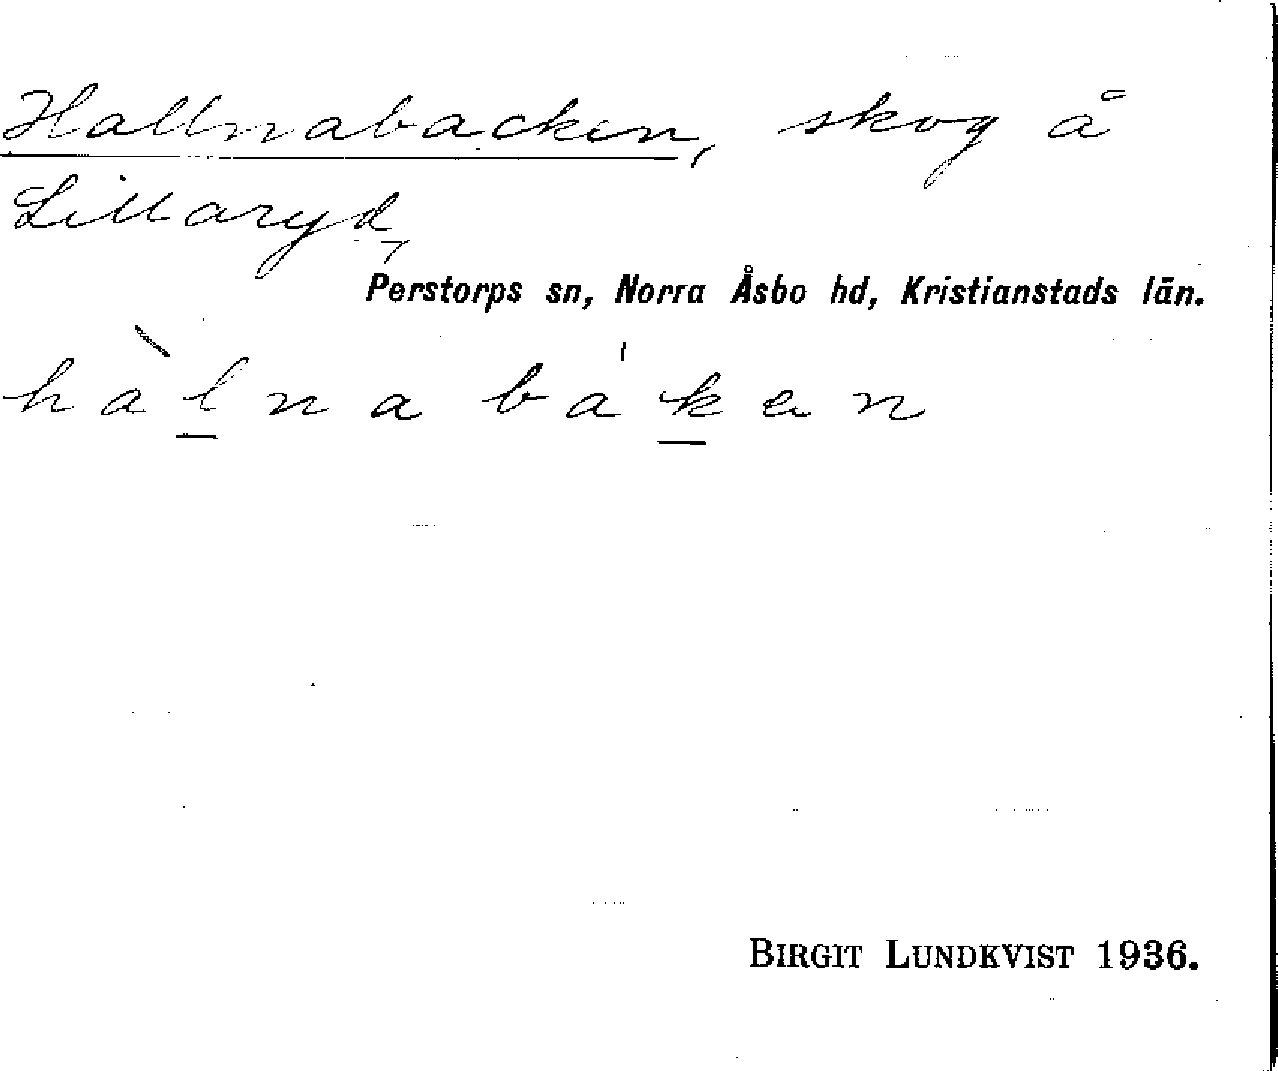 Hallnabacken, skog å
Lillaryd,
Perstorps sn, Norra Åsbo hd, Kristianstads län.
hàlna báken
BIRGIT LUNDKVIST 1936.